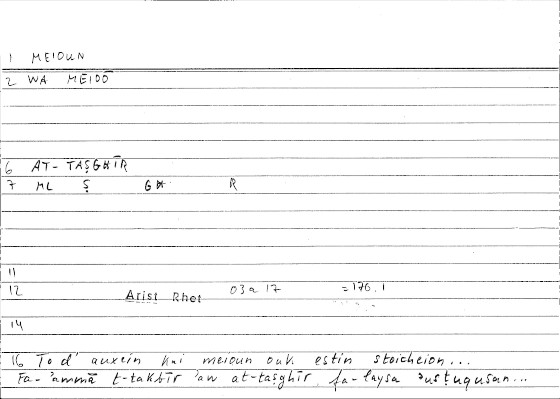 1 MEIOUN
2 WA MEIOŌ
6 AT-TAṢGHĪR
7 ML Ṣ GH R
11
12 Arist Rhet 03a17 =176.1
14
16 To d' auxein kai meioun ouk estin stoicheion...
Fa-'ammā t-takbīr 'aw at-taṣghīr, fa-laysa 'usṭuqusan...